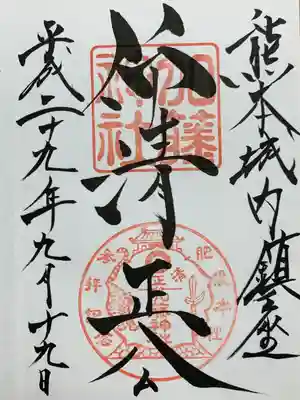 熊本城内鎮座
仰清正公
加藤神社
平成二十九年九月十九日